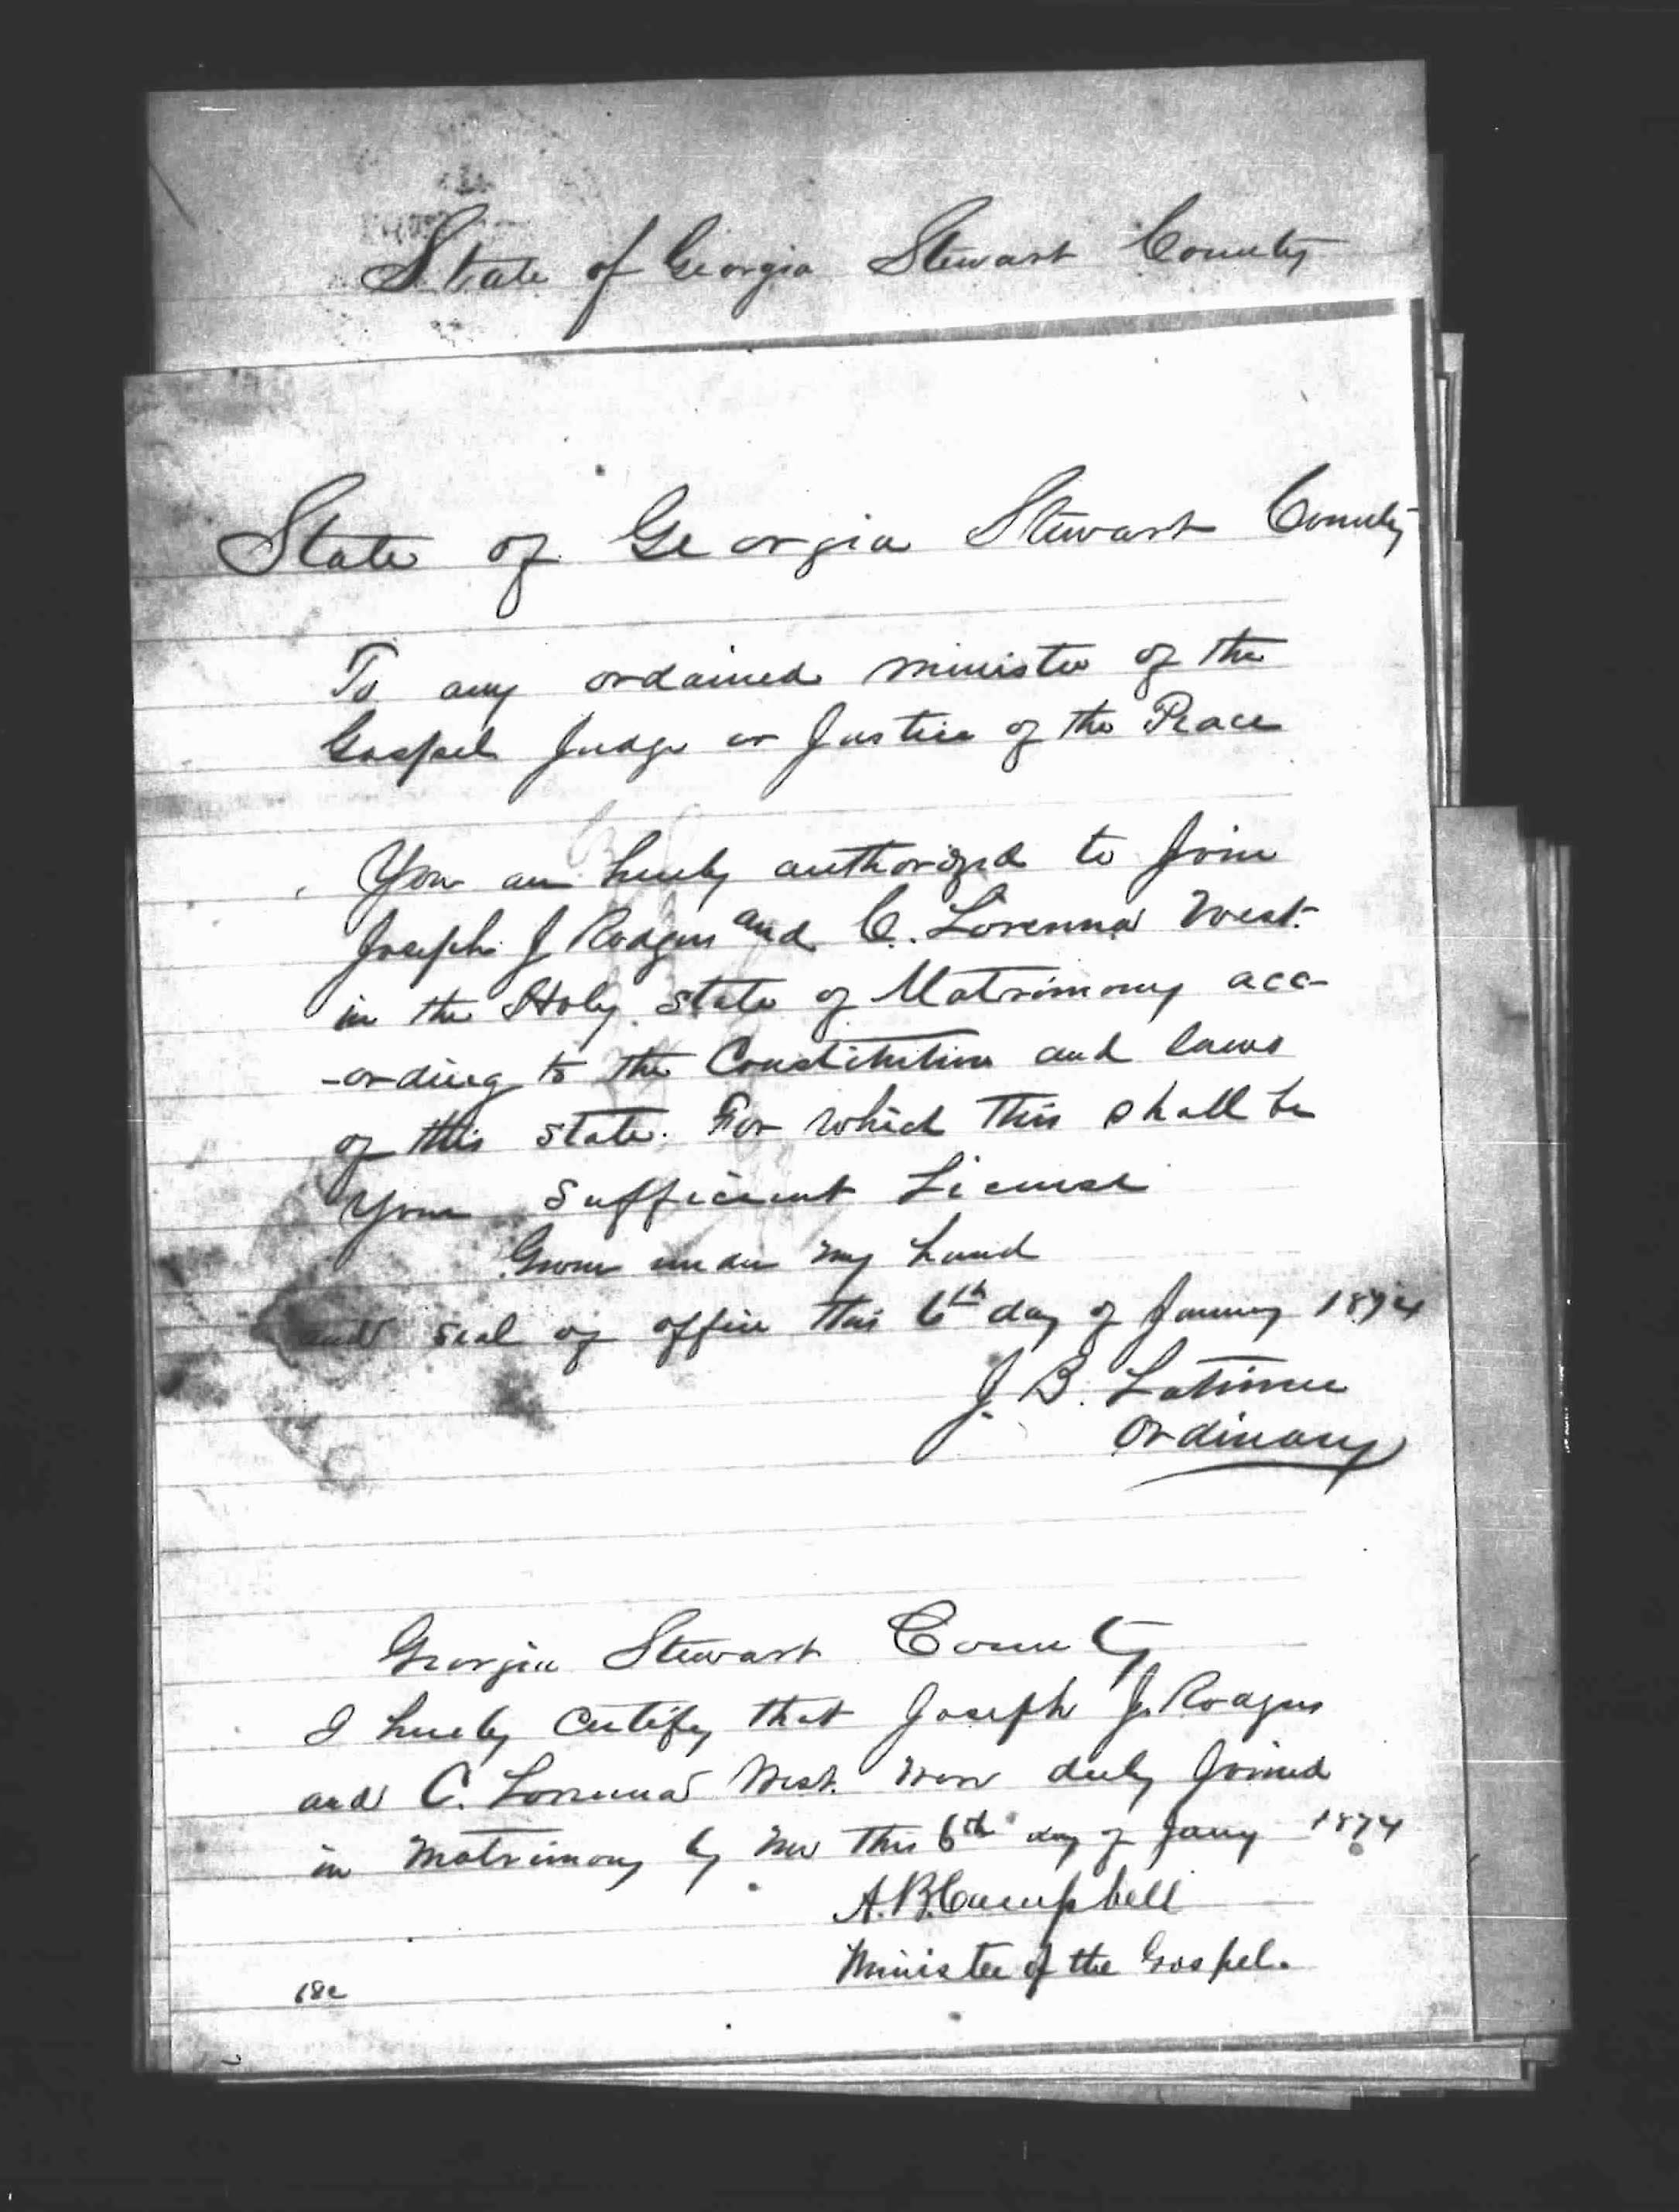 State of Georgia Stewart County
State of Georgia Stewart County
To any ordained minister of the
Gospel Judge or Justice of the Peace
You are hereby authorized to Join
Joseph J Rodgers and C. Lorenna West
in the Holy state of Matrimony acc-
-ording to the Constitution and laws
of this state. For which this shall be
Your Sufficient License
Given under my hand
and seal of office this 6th day of January 1874
J. B. Latimer
Ordinary
Georgia Stewart County
I hereby Certify that Joseph J. Rodgers
and C. Lorenna West. were duly Joined
in Matrimony by me this 6th day of Jany 1874
A. B. Campbell
Minister of the Gospel.